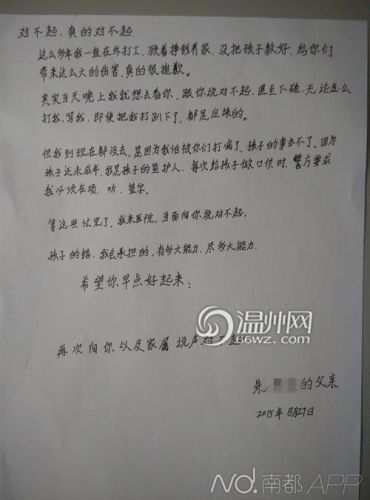 对不起，真的对不起．
这么多年我一直在外打工，顾着挣钱养家，没把孩子教好，给你们
带来这么大的伤害，真的很抱歉．
其实当天晚上我就想去看你，跟你说对不起，甚至下跪，无论怎么
打我，骂我，即使把我打趴下了，都是应该的．
但我到现在都没去，是因为我怕被你们打病了，孩子的事办不了．因为
孩子还未成年，我是孩子的监护人，每次给孩子做口供时，警方要求
我必须在场，听，签字．
等这些忙完了，我来医院，当面向你说对不起．
孩子的错，我去承担的，有多大能力，尽多大能力．
希望你早点好起来；
再次向你以及家属说声对不起
朱 的父亲
2015年8月27日
温州网
66wz.com
ND.南都APP